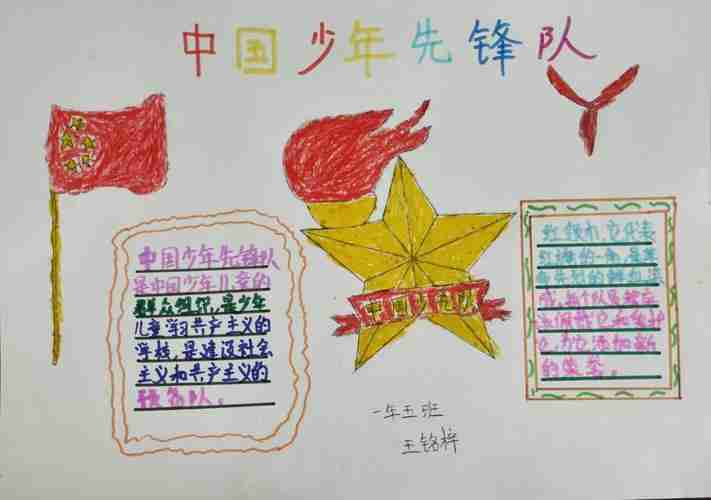 中国少年先锋队
中国少年先锋队
是中国少年儿童的
群众组织，是少年
儿童学习共产主义的
学校，是建设社会
主义和共产主义的
预备队。
中国少先队
红领巾，它代表
红旗的一角，是
烈士的鲜血染
成，每个队员都应
该佩戴它和爱护
它，为它添加新
的荣誉。
一年五班
王铭梓